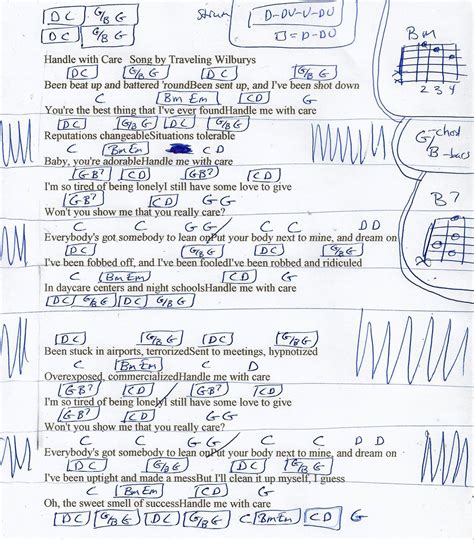 [D C] [G/B G] Strum D-DU-U-DU
[D C] [G/B G] □ = D-DU
Bm
Handle with Care Song by Traveling Wilburys
[D C] [G/B G] [D C] [G/B G]
Been beat up and battered 'roundBeen sent up, and I've been shot down
C [Bm Em] [C D] G
You're the best thing that I've ever foundHandle me with care
2 3 4
[D C] [G/B G] [D C] [G/B G]
Reputations changeableSituations tolerable
G/B -chord -bass
C [Bm Em] C D
Baby, you're adorableHandle me with care
[G B7] [C D] [G B7] [C D]
I'm so tired of being lonelyI still have some love to give
[G B7] [C D] G G
Won't you show me that you really care?
B7
C C G G C C D D
Everybody's got somebody to lean onPut your body next to mine, and dream on
[D C] [G/B G] [D C] [G/B G]
I've been fobbed off, and I've been fooledI've been robbed and ridiculed
C [Bm Em] [C D] G
In daycare centers and night schoolsHandle me with care
[D C] [G/B G] [D C] [G/B G]
[D C] [G/B G] [D C] [G/B G]
Been stuck in airports, terrorizedSent to meetings, hypnotized
C [Bm Em] C D
Overexposed, commercializedHandle me with care
[G B7] [C D] [G B7] [C D]
I'm so tired of being lonelyI still have some love to give
[G B7] [C D] G G
Won't you show me that you really care?
C C G G C C D D
Everybody's got somebody to lean onPut your body next to mine, and dream on
[D C] [G/B G] [D C] [G/B G]
I've been uptight and made a messBut I'll clean it up myself, I guess
C [Bm Em] [C D] G
Oh, the sweet smell of successHandle me with care
[D C] [G/B G] [D C] [G/B G] C [Bm Em] [C D] G